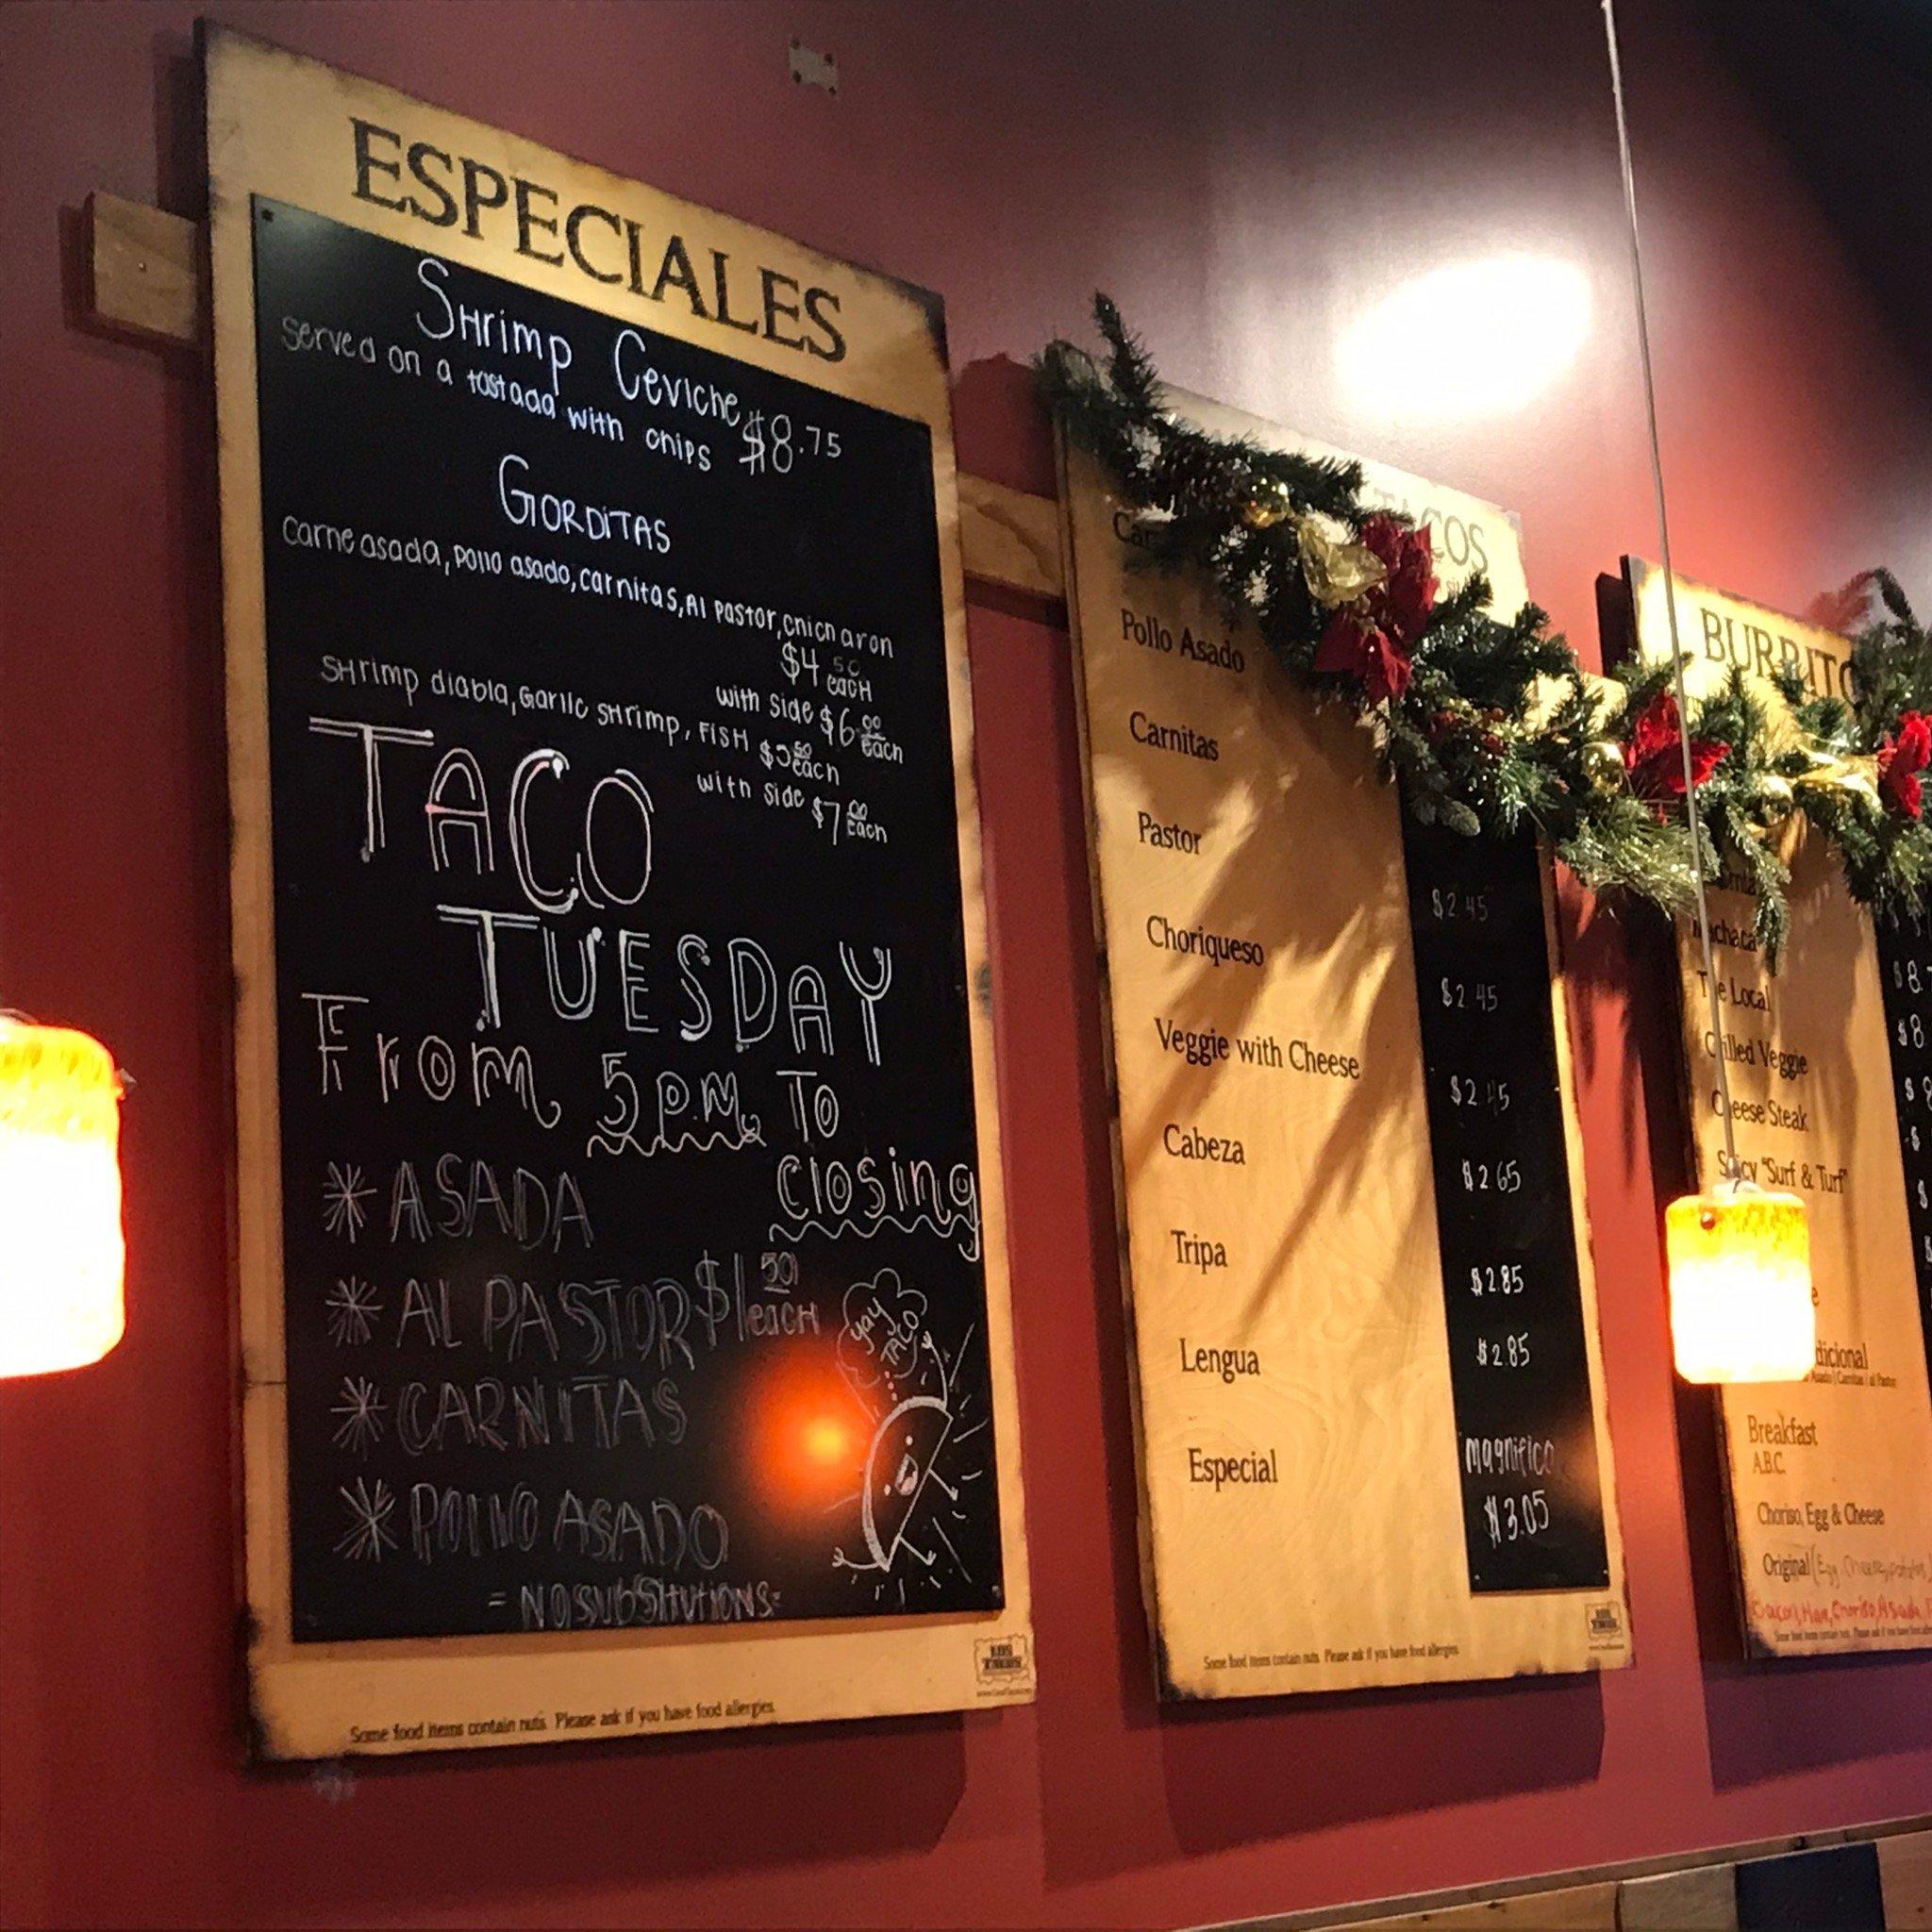 ESPECIALES
SHrimp Ceviche $8.75
served on a tostada with chips
GORDITAS
carne asada, pollo asado, carnitas, Al pastor, chicharon
$4 50 eacH
with side $6 00 Each
SHrimp diabla, Garlic SHrimp, FISH $5 50 Each
with side $7 00 Each
TACO
TUESDAY
From 5 P.M. TO
closing
*ASADA
*AL PASTOR $1 50 eacH
*CARNITAS
*POLLO ASADO
= NO SUBSITUTIONS=
yay
TACO
Some food items contain nuts. Please ask if you have food allergies.
LOS TACOS
TACOS
Pollo Asado
Carnitas
Pastor $2.45
Choriqueso $2.45
Veggie with Cheese $2.45
Cabeza $2.65
Tripa $2.85
Lengua $2.85
Especial magnifico $3.05
Some food items contain nuts. Please ask if you have food allergies.
BURRITO
The Local
Grilled Veggie
Cheese Steak
Spicy "Surf & Turf"
Breakfast
A.B.C.
Choriso, Egg & Cheese
Original (Egg, Cheese, potatos
Bacon, Ham, Choriso, Asada